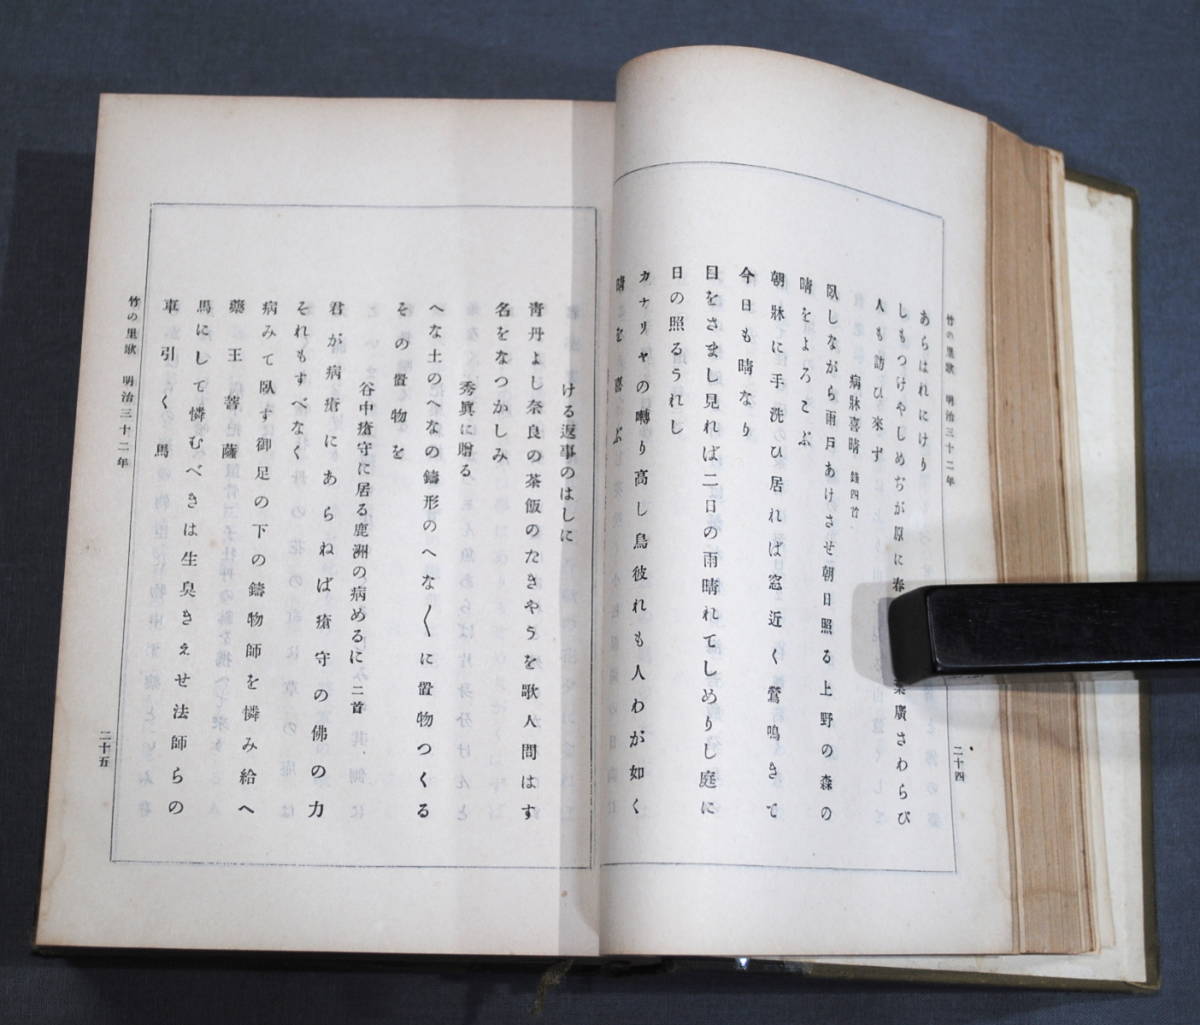 竹の里歌 明治三十二年
二十四
あらはれにけり
しもつけやしめぢが原に春
葉廣さわらび
人も訪ひ來ず
病牀喜晴 錄四首
臥しながら雨戸あけさせ朝日照る上野の森の
晴をよろこぶ
朝牀に手洗ひ居れば窓近く鶯鳴きて
今日も晴なり
目をさまし見れば二日の雨晴れてしめりし庭に
日の照るうれし
カナリヤの囀り高し鳥彼れも人わが如く
晴を喜ぶ
ける返事のはしに
青丹よし奈良の茶飯のたきやうを歌人問はす
名をなつかしみ
秀眞に贈る
へな土のへなの鑄形のへな〱に置物つくる
その置物を
谷中瘡守に居る鹿洲の病めるに 二首
君が病瘡にあらねば瘡守の佛の力
それもすべなく
病みて臥す御足の下の鑄物師を憐み給へ
藥王菩薩
馬にして憐むべきは生臭きえせ法師らの
車引く馬
竹の里歌 明治三十二年
二十五